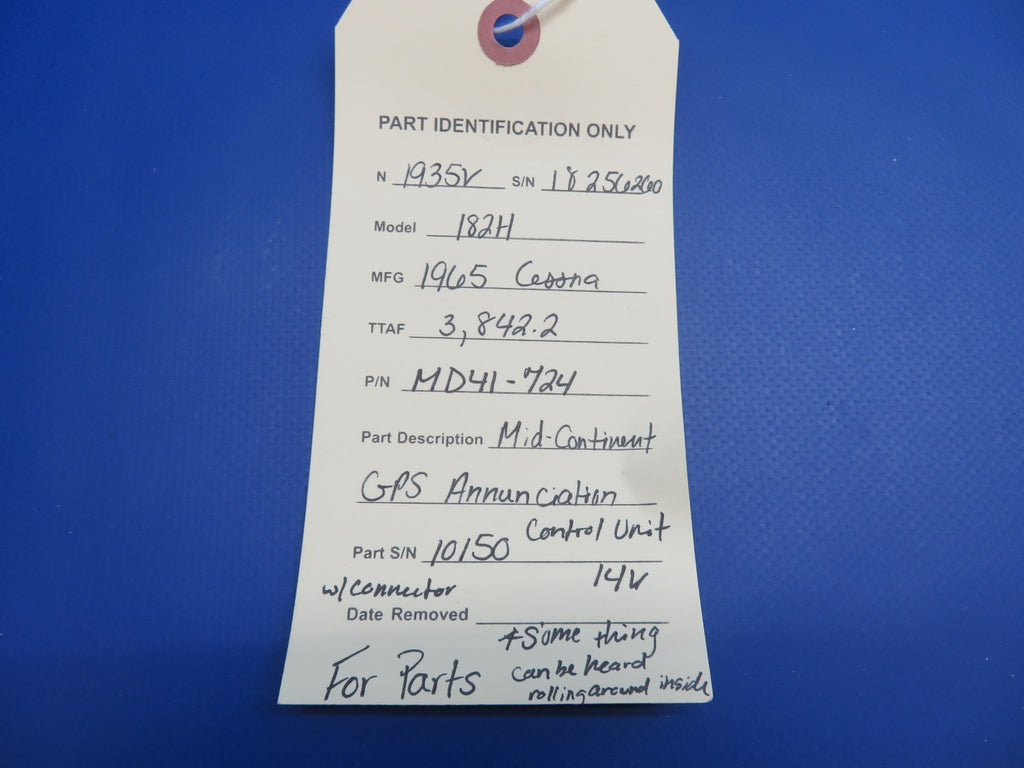 PART IDENTIFICATION ONLY
N 1935V S/N 18256260
Model 182H
MFG 1965 Cessna
TTAF 3,842.2
P/N MD41-724
Part Description Mid-Continent
GPS Annunciation
Control Unit
Part S/N 10150
14V
w/connector
Date Removed
*Something
can be heard
rolling around inside
For Parts